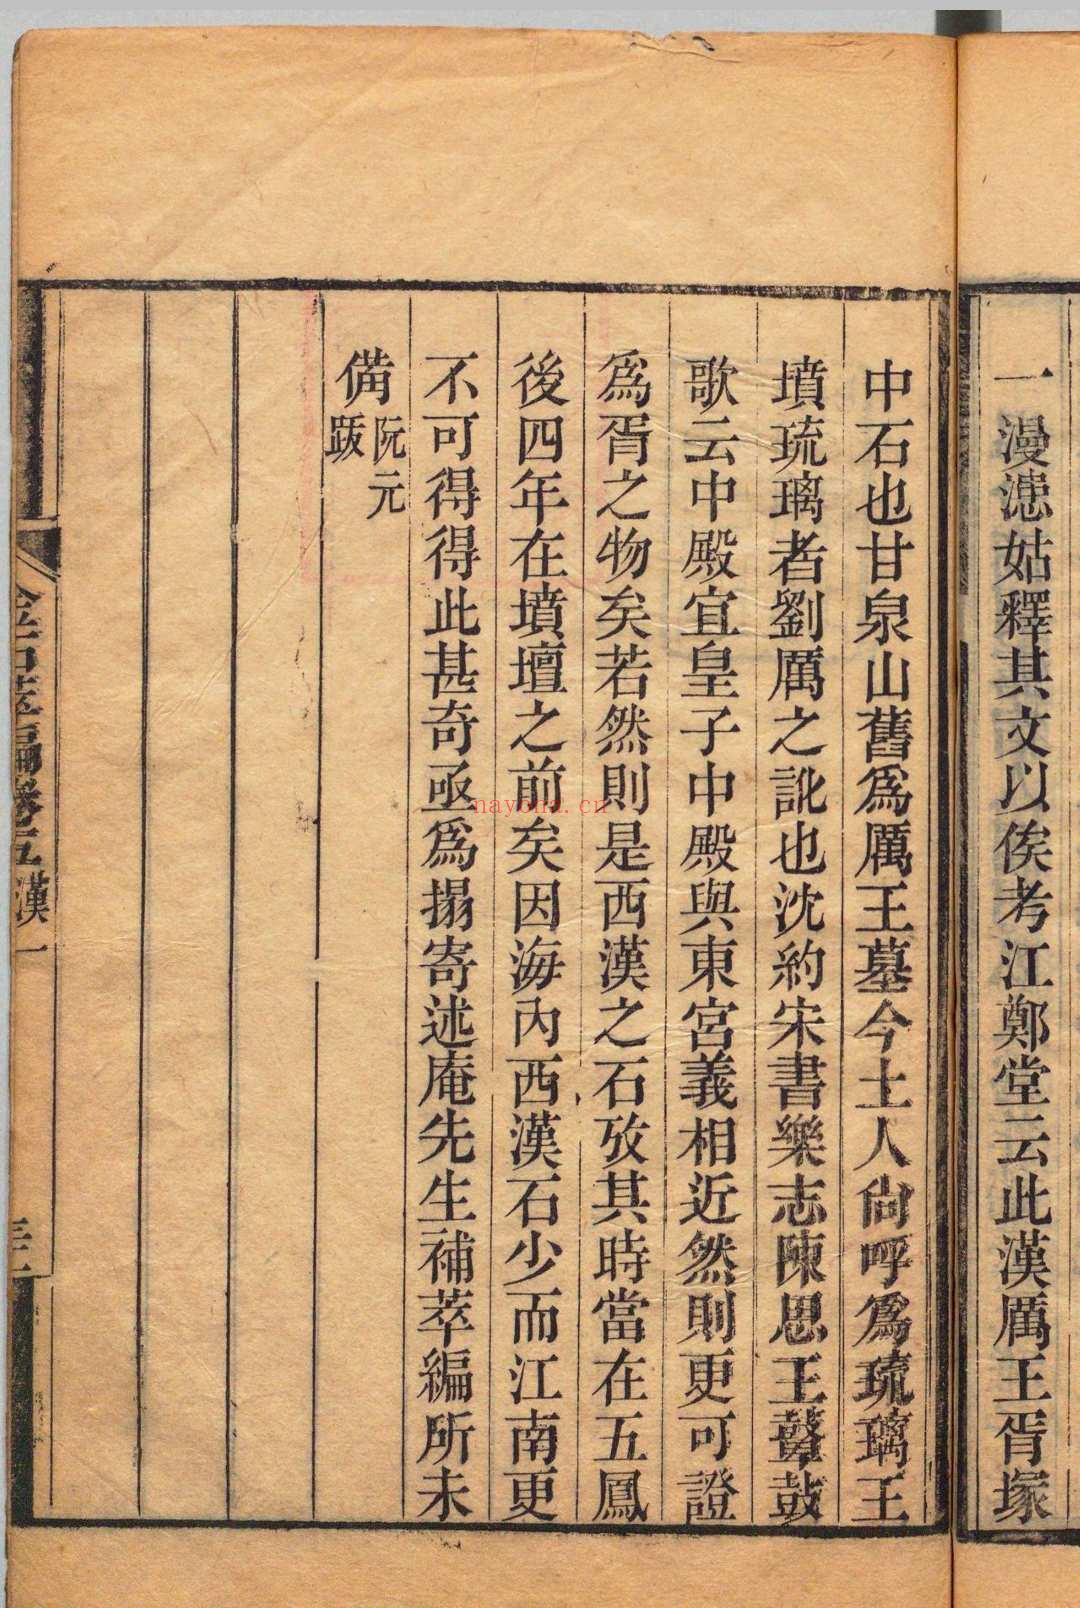 一漫漶姑釋其文以俟考江鄭堂云此漢厲王胥塚
中石也甘泉山舊爲厲王墓今土人尙呼爲琉璃王
墳琉璃者劉厲之訛也沈約宋書樂志陳思王鼙鼓
歌云中殿宜皇子中殿與東宮義相近然則更可證
爲胥之物矣若然則是西漢之石攷其時當在五鳳
後四年在墳壇之前矣因海內西漢石少而江南更
不可得得此甚奇亟爲搨寄述庵先生補萃編所未
備阮元跋
金石萃編卷五漢一
nayona.cn